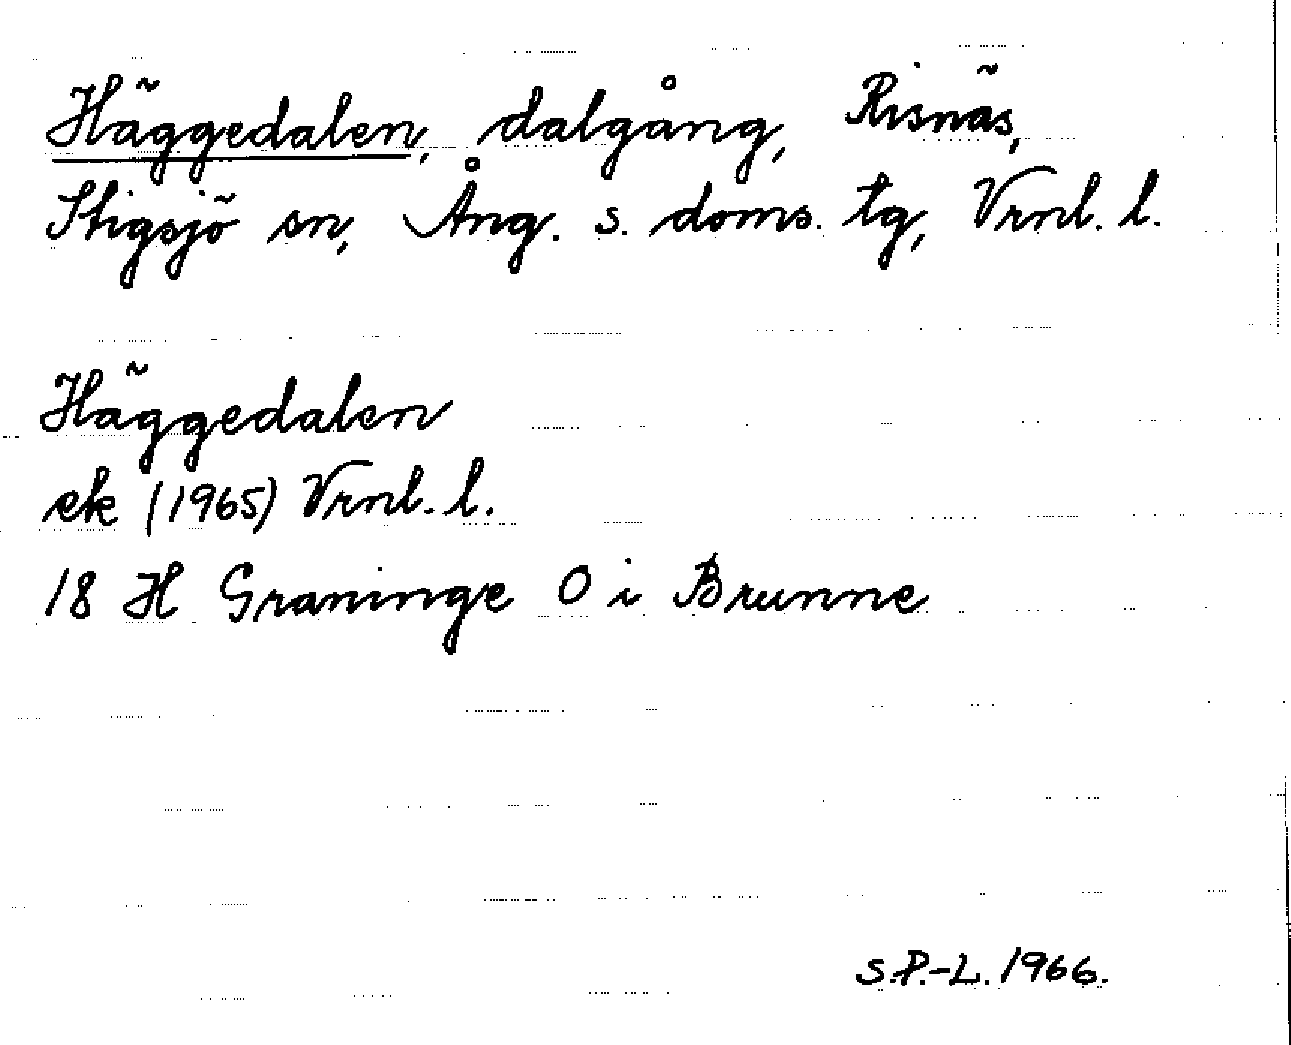 Häggedalen, dalgång, Risnäs,
Stigsjö sn, Ång. s. doms. tg, Vrnl. l.
Häggedalen
ek (1965) Vrnl. l.
18 H Graninge O i Brunne
S.P.-L. 1966.